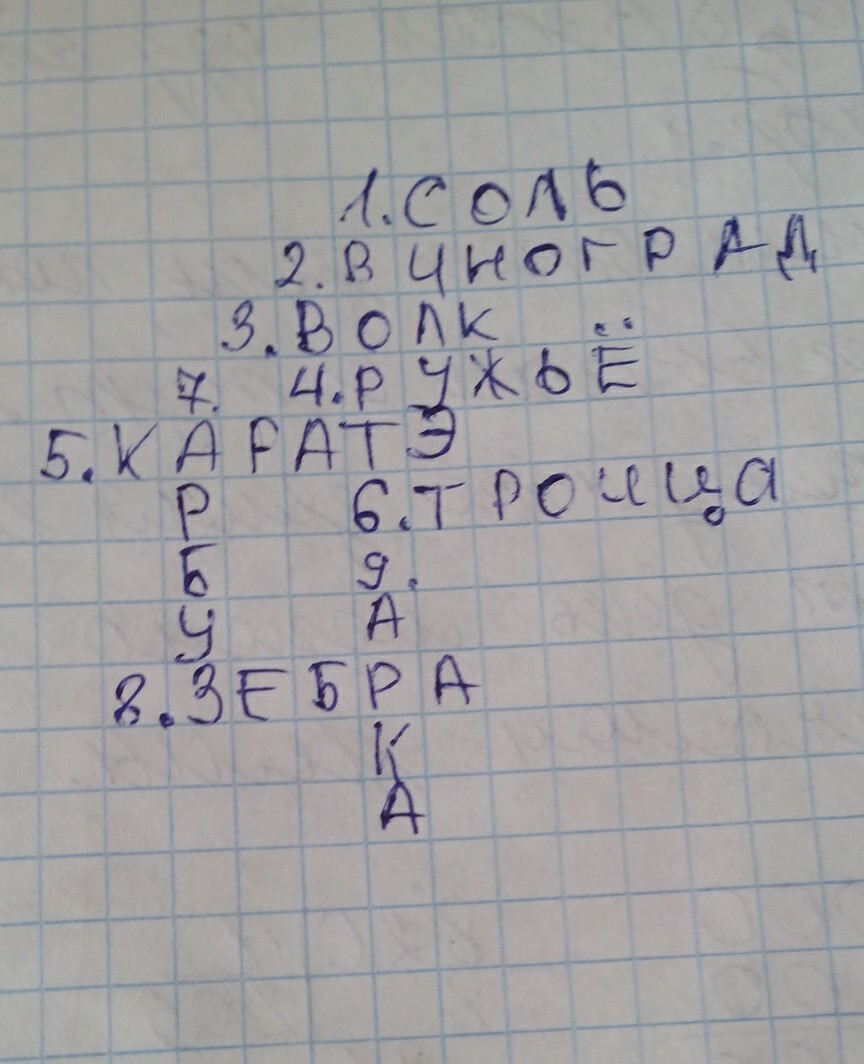 1. СОЛЬ
2. ВИНОГРАД
3. ВОЛК
7. 4. РУЖЬЁ
5. КАРАТЭ
Р 6. ТРОИЦА
Б 9.
У А
8. ЗЕБРА
К
А